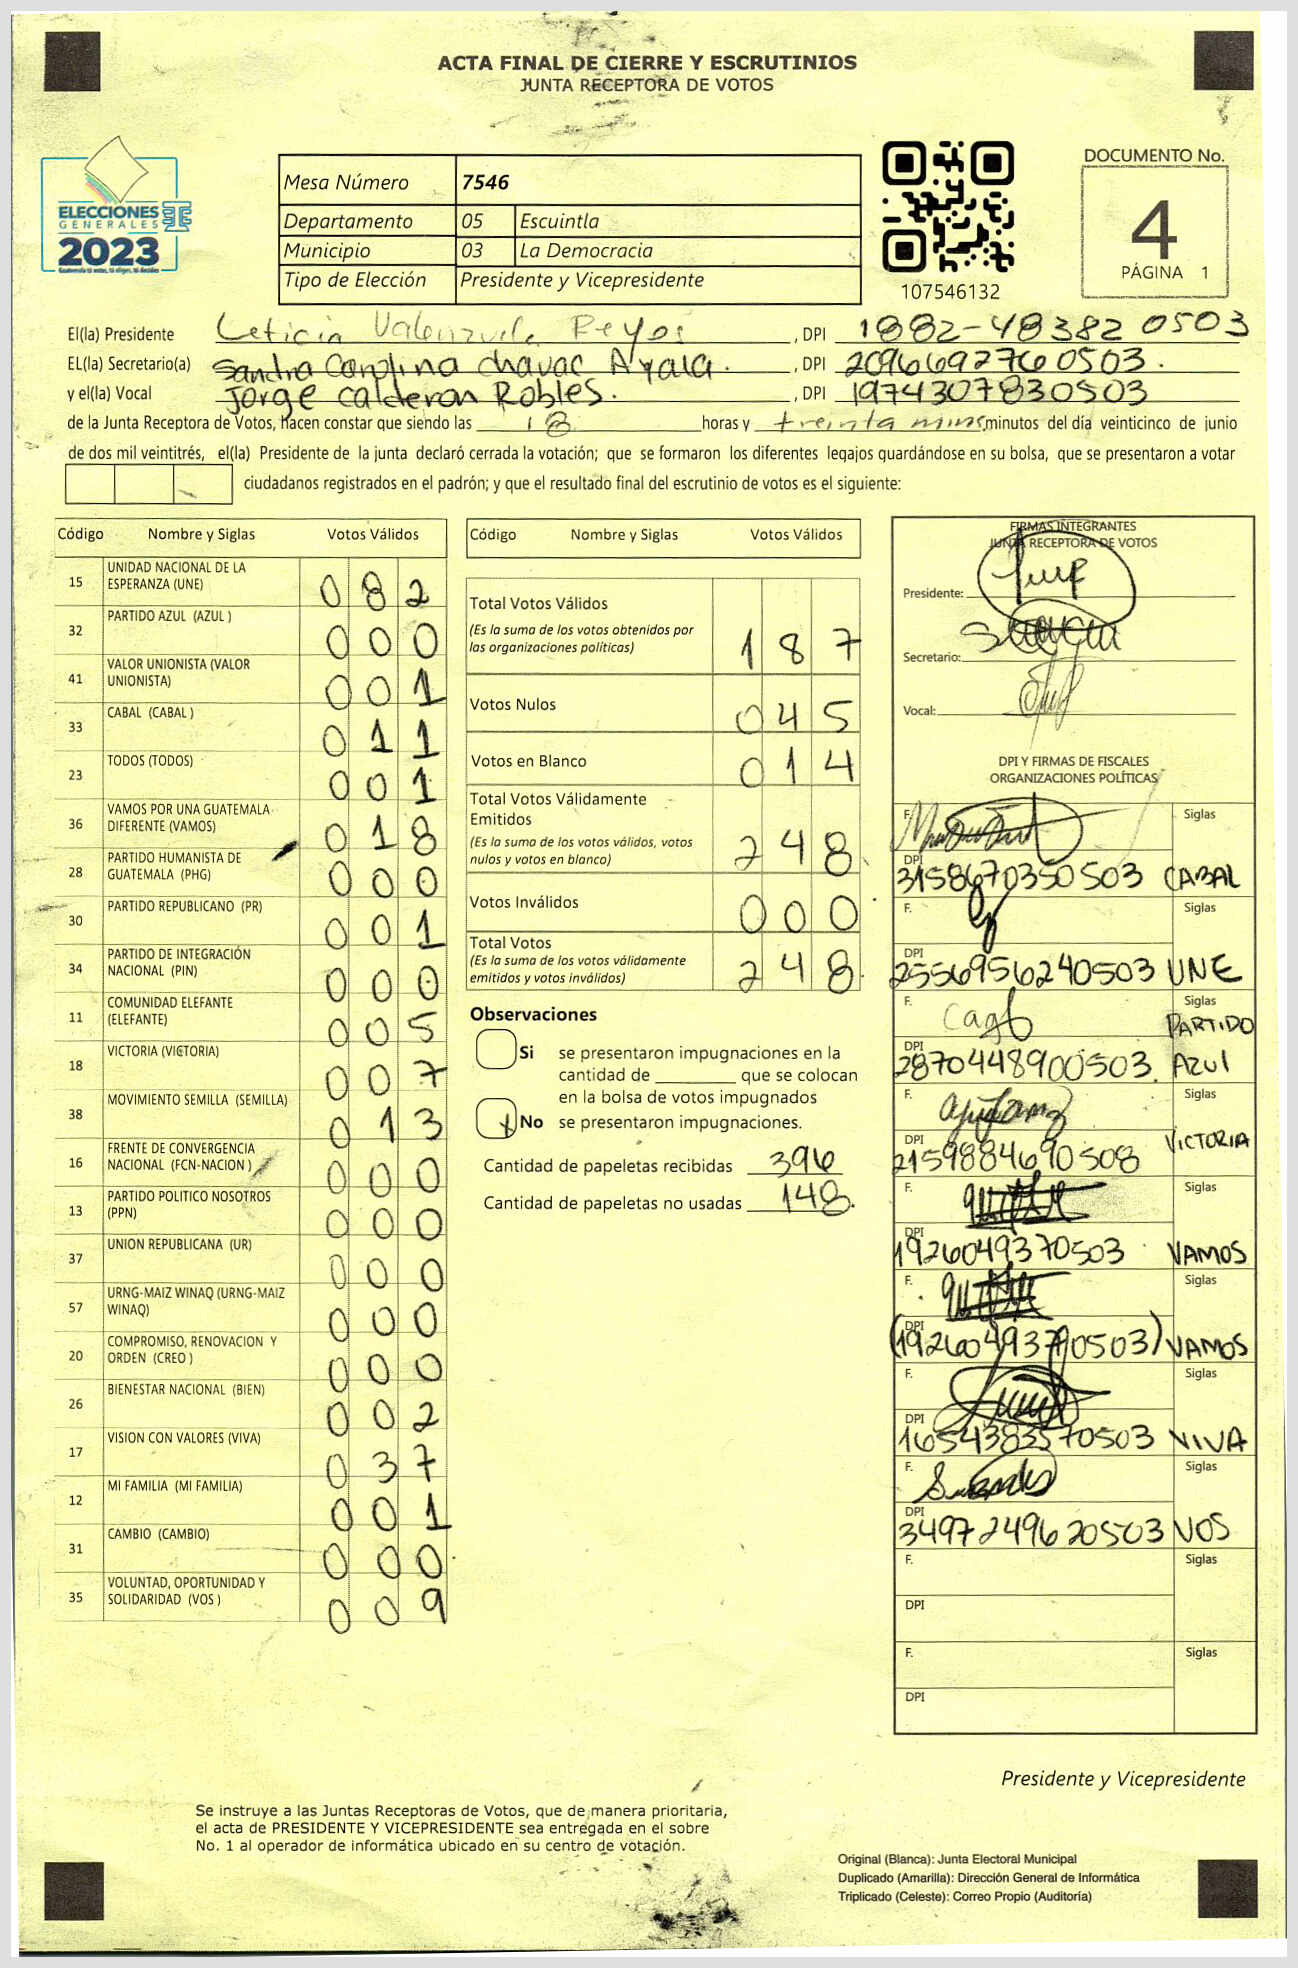 ACTA FINAL DE CIERRE Y ESCRUTINIOS
JUNTA RECEPTORA DE VOTOS
ELECCIONES
GENERALES
2023
Mesa Número 7546
Departamento 05 Escuintla
Municipio 03 La Democracia
Tipo de Elección Presidente y Vicepresidente
107546132
DOCUMENTO No.
4
PÁGINA 1
El(la) Presidente Leticia Valenzuela Reyes, DPI 1882-48382 0503
EL(la) Secretario(a) Sandra Carolina Chavac Ayala., DPI 2096692760503.
y el(la) Vocal Jorge Calderon Robles., DPI 1974307830503
de la Junta Receptora de Votos, hacen constar que siendo las 18 horas y treinta mins minutos del día veinticinco de junio
de dos mil veintitrés, el(la) Presidente de la junta declaró cerrada la votación; que se formaron los diferentes legajos guardándose en su bolsa, que se presentaron a votar
ciudadanos registrados en el padrón; y que el resultado final del escrutinio de votos es el siguiente:
Código Nombre y Siglas Votos Válidos
15 UNIDAD NACIONAL DE LA ESPERANZA (UNE) 082
32 PARTIDO AZUL (AZUL ) 000
41 VALOR UNIONISTA (VALOR UNIONISTA) 001
33 CABAL (CABAL ) 011
23 TODOS (TODOS) 001
36 VAMOS POR UNA GUATEMALA DIFERENTE (VAMOS) 018
28 PARTIDO HUMANISTA DE GUATEMALA (PHG) 000
30 PARTIDO REPUBLICANO (PR) 001
34 PARTIDO DE INTEGRACIÓN NACIONAL (PIN) 000
11 COMUNIDAD ELEFANTE (ELEFANTE) 005
18 VICTORIA (VICTORIA) 007
38 MOVIMIENTO SEMILLA (SEMILLA) 013
16 FRENTE DE CONVERGENCIA NACIONAL (FCN-NACION ) 000
13 PARTIDO POLITICO NOSOTROS (PPN) 000
37 UNION REPUBLICANA (UR) 000
57 URNG-MAIZ WINAQ (URNG-MAIZ WINAQ) 000
20 COMPROMISO, RENOVACION Y ORDEN (CREO ) 000
26 BIENESTAR NACIONAL (BIEN) 002
17 VISION CON VALORES (VIVA) 037
12 MI FAMILIA (MI FAMILIA) 001
31 CAMBIO (CAMBIO) 000
35 VOLUNTAD, OPORTUNIDAD Y SOLIDARIDAD (VOS ) 009
Código Nombre y Siglas Votos Válidos
Total Votos Válidos 187
(Es la suma de los votos obtenidos por
las organizaciones políticas)
Votos Nulos 045
Votos en Blanco 014
Total Votos Válidamente
Emitidos 248
(Es la suma de los votos válidos, votos
nulos y votos en blanco)
Votos Inválidos 000
Total Votos 248
(Es la suma de los votos válidamente
emitidos y votos inválidos)
Observaciones
Si se presentaron impugnaciones en la
cantidad de ________ que se colocan
en la bolsa de votos impugnados
X No se presentaron impugnaciones.
Cantidad de papeletas recibidas 396
Cantidad de papeletas no usadas 148.
FIRMAS INTEGRANTES
JUNTA RECEPTORA DE VOTOS
Presidente:
Secretario:
Vocal:
DPI Y FIRMAS DE FISCALES
ORGANIZACIONES POLÍTICAS
F. Siglas
DPI 3158670350503 CABAL
F. Siglas
DPI 2556956240503 UNE
F. Siglas
DPI 2870448900503. PARTIDO AZUL
F. Siglas
DPI 2159884690508 VICTORIA
F. Siglas
DPI 1926049370503 VAMOS
F. Siglas
DPI (1926049370503) VAMOS
F. Siglas
DPI 1654383570503 VIVA
F. Siglas
DPI 3497249620503 VOS
F. Siglas
DPI
F. Siglas
DPI
Presidente y Vicepresidente
Se instruye a las Juntas Receptoras de Votos, que de manera prioritaria,
el acta de PRESIDENTE Y VICEPRESIDENTE sea entregada en el sobre
No. 1 al operador de informática ubicado en su centro de votación.
Original (Blanca): Junta Electoral Municipal
Duplicado (Amarilla): Dirección General de Informática
Triplicado (Celeste): Correo Propio (Auditoría)